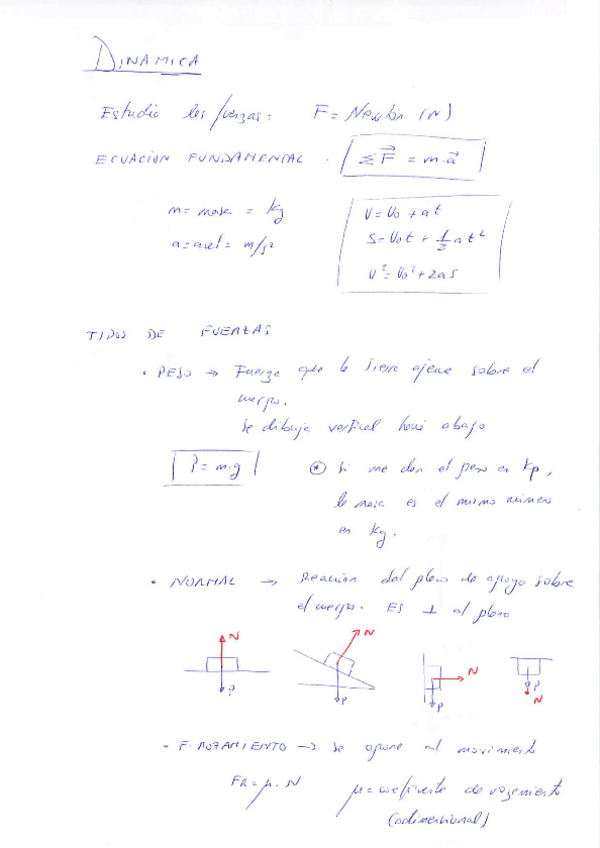 DINAMICA
Estudia las fuerzas: F = Newton (N)
ECUACION FUNDAMENTAL . Σ F⃗ = m.a⃗
m = masa = kg
a = acel = m/s²
V = Vo + at
S = Vot + 1/2 at²
V² = Vo² + 2as
TIPOS DE FUERZAS
• PESO → Fuerza que la tierra ejerce sobre el
cuerpo.
Se dibuja vertical hacia abajo
P = m.g
* Si me dan el peso en Kp,
la masa es el mismo número
en kg.
• NORMAL → Reacción del plano de apoyo sobre
el cuerpo. ES ⊥ al plano
N N N
P P P P
N
• F. ROZAMIENTO → Se opone al movimiento
FR = μ. N μ = coeficiente de rozamiento
(adimensional)